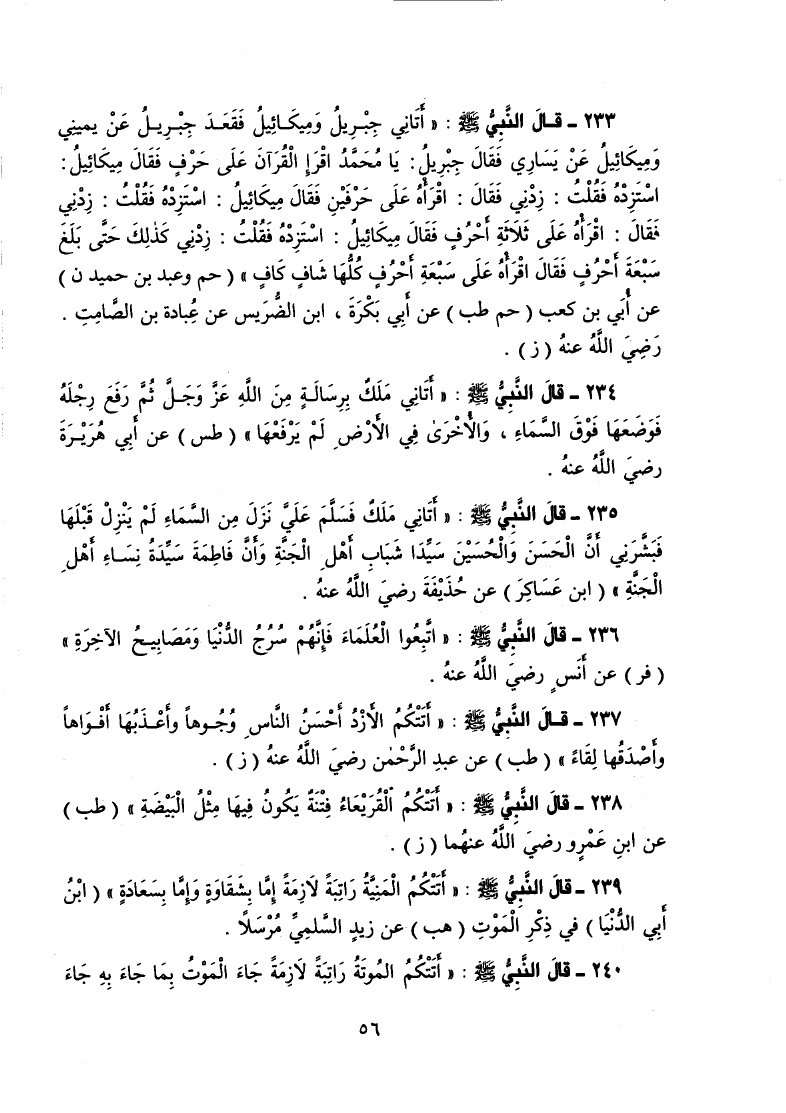 ٢٣٣ - قَالَ النَّبِيُّ ﷺ : « أَتَانِي جِبْرِيلُ وَمِيكَائِيلُ فَقَعَدَ جِبْرِيلُ عَنْ يَمِينِي
وَمِيكَائِيلُ عَنْ يَسَارِي فَقَالَ جِبْرِيلُ : يَا مُحَمَّدُ اقْرَإِ الْقُرْآنَ عَلَى حَرْفٍ فَقَالَ مِيكَائِيلُ :
اسْتَزِدْهُ فَقُلْتُ : زِدْنِي فَقَالَ : اقْرَأْهُ عَلَى حَرْفَيْنِ فَقَالَ مِيكَائِيلُ : اسْتَزِدْهُ فَقُلْتُ : زِدْنِي
فَقَالَ : اقْرَأْهُ عَلَى ثَلَاثَةِ أَحْرُفٍ فَقَالَ مِيكَائِيلُ : اسْتَزِدْهُ فَقُلْتُ : زِدْنِي كَذَٰلِكَ حَتَّى بَلَغَ
سَبْعَةَ أَحْرُفٍ فَقَالَ اقْرَأْهُ عَلَى سَبْعَةِ أَحْرُفٍ كُلُّهَا شَافٍ كَافٍ » ( حم وعبد بن حميد ن )
عن أُبَي بن كعب ( حم طب ) عن أَبِي بَكْرَةَ ، ابن الضُّرَيس عن عُبادة بن الصَّامِتِ .
رَضِيَ اللَّهُ عنهُ ( ز ) .
٢٣٤ - قَالَ النَّبِيُّ ﷺ : « أَتَانِي مَلَكٌ بِرِسَالَةٍ مِنَ اللَّهِ عَزَّ وَجَلَّ ثُمَّ رَفَعَ رِجْلَهُ
فَوَضَعَهَا فَوْقَ السَّمَاءِ ، وَالْأُخْرَىٰ فِي الْأَرْضِ لَمْ يَرْفَعْهَا » ( طس ) عن أَبِي هُرَيْرَةَ
رضيَ اللَّهُ عنهُ .
٢٣٥ - قَالَ النَّبِيُّ ﷺ : « أَتَانِي مَلَكٌ فَسَلَّمَ عَلَيَّ نَزَلَ مِنَ السَّمَاءِ لَمْ يَنْزِلْ قَبْلَهَا
فَبَشَّرَنِي أَنَّ الْحَسَنَ وَالْحُسَيْنَ سَيِّدَا شَبَابِ أَهْلِ الْجَنَّةِ وَأَنَّ فَاطِمَةَ سَيِّدَةُ نِسَاءِ أَهْلِ
الْجَنَّةِ » ( ابن عَسَاكِرَ ) عن حُذَيْفَةَ رضيَ اللَّهُ عنهُ .
٢٣٦ - قَالَ النَّبِيُّ ﷺ : « اتَّبِعُوا الْعُلَمَاءَ فَإِنَّهُمْ سُرُجُ الدُّنْيَا وَمَصَابِيحُ الآخِرَةِ »
( فر ) عن أَنَسٍ رضيَ اللَّهُ عنهُ .
٢٣٧ - قَالَ النَّبِيُّ ﷺ : « أَتَتْكُمُ الأَزْدُ أَحْسَنُ النَّاسِ وُجُوهاً وأَعْذَبُهَا أَفْوَاهاً
وأَصْدَقُهَا لِقَاءً » ( طب ) عن عبدِ الرَّحْمٰنِ رضيَ اللَّهُ عنهُ ( ز ) .
٢٣٨ - قَالَ النَّبِيُّ ﷺ : « أَتَتْكُمُ الْقُرَيْعَاءُ فِتْنَةٌ يَكُونُ فِيهَا مِثْلُ الْبَيْضَةِ » ( طب )
عن ابنِ عَمْرٍو رضيَ اللَّهُ عنهُما ( ز ) .
٢٣٩ - قَالَ النَّبِيُّ ﷺ : « أَتَتْكُمُ الْمَنِيَّةُ رَاتِبَةً لَازِمَةً إِمَّا بِشَقَاوَةٍ وَإِمَّا بِسَعَادَةٍ » ( ابْنُ
أَبِي الدُّنْيَا ) في ذِكْرِ الْمَوْتِ ( هب ) عن زيدٍ السَّلميِّ مُرْسَلًا .
٢٤٠ - قَالَ النَّبِيُّ ﷺ : « أَتَتْكُمُ المُوتَةُ رَاتِبَةً لَازِمَةً جَاءَ الْمَوْتُ بِمَا جَاءَ بِهِ جَاءَ
٥٦